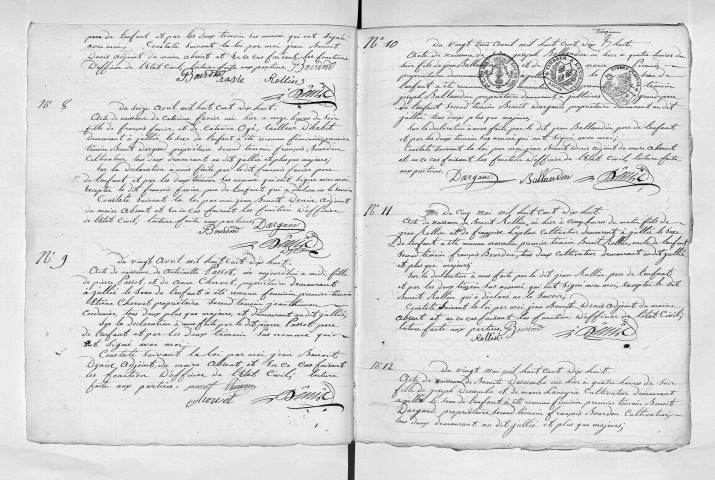 pere de lenfant et par les deux temoin les meme qui ont signé
avec moy. Constate Suivant la loi par moi jean Benoit
Denis adjoint du maire absent et En ce cas faisant les fonctions
D'officier de l'Etat Civil, lecture faite aux parties, Bourdon
Rollin
Denis
N° 8
Du seize avril mil huit cent dix huit.
Acte de naissance de Caterine favier née hier a onze heures du soir
fille de françois favier et de Caterine tailleur Dhabit
demeurant a jullié. le Sexe de lenfant a été reconnu féminin premier
temoin Benoit Dargaud propriétaire Second temoin françois Bourdon
Cultivateur, tous deux demeurant au dit jullié et plus que majeurs,
Sur la Declaration a nous faite par le dit françois favier pere
de lenfant et par les deux temoin Sus nommés qui ont Signé avec moi
Excepté le dit françois favier pere de lenfant qui a declaré ne le Savoir
Constaté Suivant la loi par moi jean Benoit Denis Adjoint
du maire Absent et en ce cas faisant les fonction D'officier
de l'Etat Civil, lecture faite aux parties Dargaud
Bourdon
Denis
N° 9
Du vingt Avril mil huit cent dix huit.
Acte de naissance de Antoinette Passot, née aujourd'hui a midi fille
de pierre Passot et de Anne Chervet propriétaire demeurant
a jullié le Sexe de lenfant a été reconnu feminin premier temoin
Chervet propriétaire Second temoin
Cordonnier, tous deux plus que majeurs, et demeurant au dit jullié;
Sur la Declaration a nous faite par le dit pierre Passot pere
de lenfant et par les deux temoin Sus nommés qui
ont Signé avec moi.
Constaté Suivant la loi par moi jean Benoit
Denis Adjoint du maire Absent et En ce cas faisant
les fonction D'officier de l'Etat Civil, lecture
faite aux parties.
Denis
N° 10
Du vingt trois avril mil huit cent dix huit
Acte de naissance de joseph Ballandin né hier a quatre heures du
Soir fils de jean Ballandin et de
propriétaire demeurant a le Sexe de
lenfant a été reconnu masculin premier temoin joseph
Ballandin propriétaire
de lenfant Second temoin Benoit Dargaud propriétaire demeurant au dit
jullié, tous deux plus que majeurs
Sur la Declaration a nous faite par le dit jean Ballandin pere de lenfant
et par les deux temoin Sus nommés qui ont Signé avec moi.
Constaté Suivant la loi par moi jean Benoit Denis Adjoint du maire Absent
et en ce cas faisant les fonction D'officier de l'Etat Civil, lecture faite
aux parties.
Dargaud Ballandin Denis
N° 11
Du Cinq Mai mil huit Cent Dix huit.
Acte de naissance de Benoit Rollin, né hier a Cinq heures du matin fils de
jean Rollin et de françoise Cultivateur demeurant a jullié le Sexe
de lenfant a été reconnu masculin premier temoin Benoit Rollin, oncle de lenfant
Second temoin françois Bourdon, tous deux Cultivateur demeurant au dit jullié
et plus que majeurs;
Sur la Declaration a nous faite par le dit jean Rollin pere de lenfant
et par les deux temoin Sus nommés, qui ont Signé avec moi excepté le dit
Benoit Rollin qui a declaré ne le Savoir;
Constaté Suivant la loi par moi jean Benoit Denis Adjoint du maire
Absent et en ce cas faisant les fonctions D'officier de l'Etat Civil,
lecture faite aux parties Bourdon
Rollin Denis
N° 12
Du vingt mai mil huit cent dix huit
Acte de naissance de Benoite Descombe née hier a quatre heures du Soir
fille de joseph Descombe et de marie Cultivateur demeurant
a jullié le Sexe de lenfant a été reconnu féminin premier temoin Benoit
Dargaud, propriétaire Second temoin françois Bourdon Cultivateur
tous deux demeurant au dit jullié et plus que majeurs;